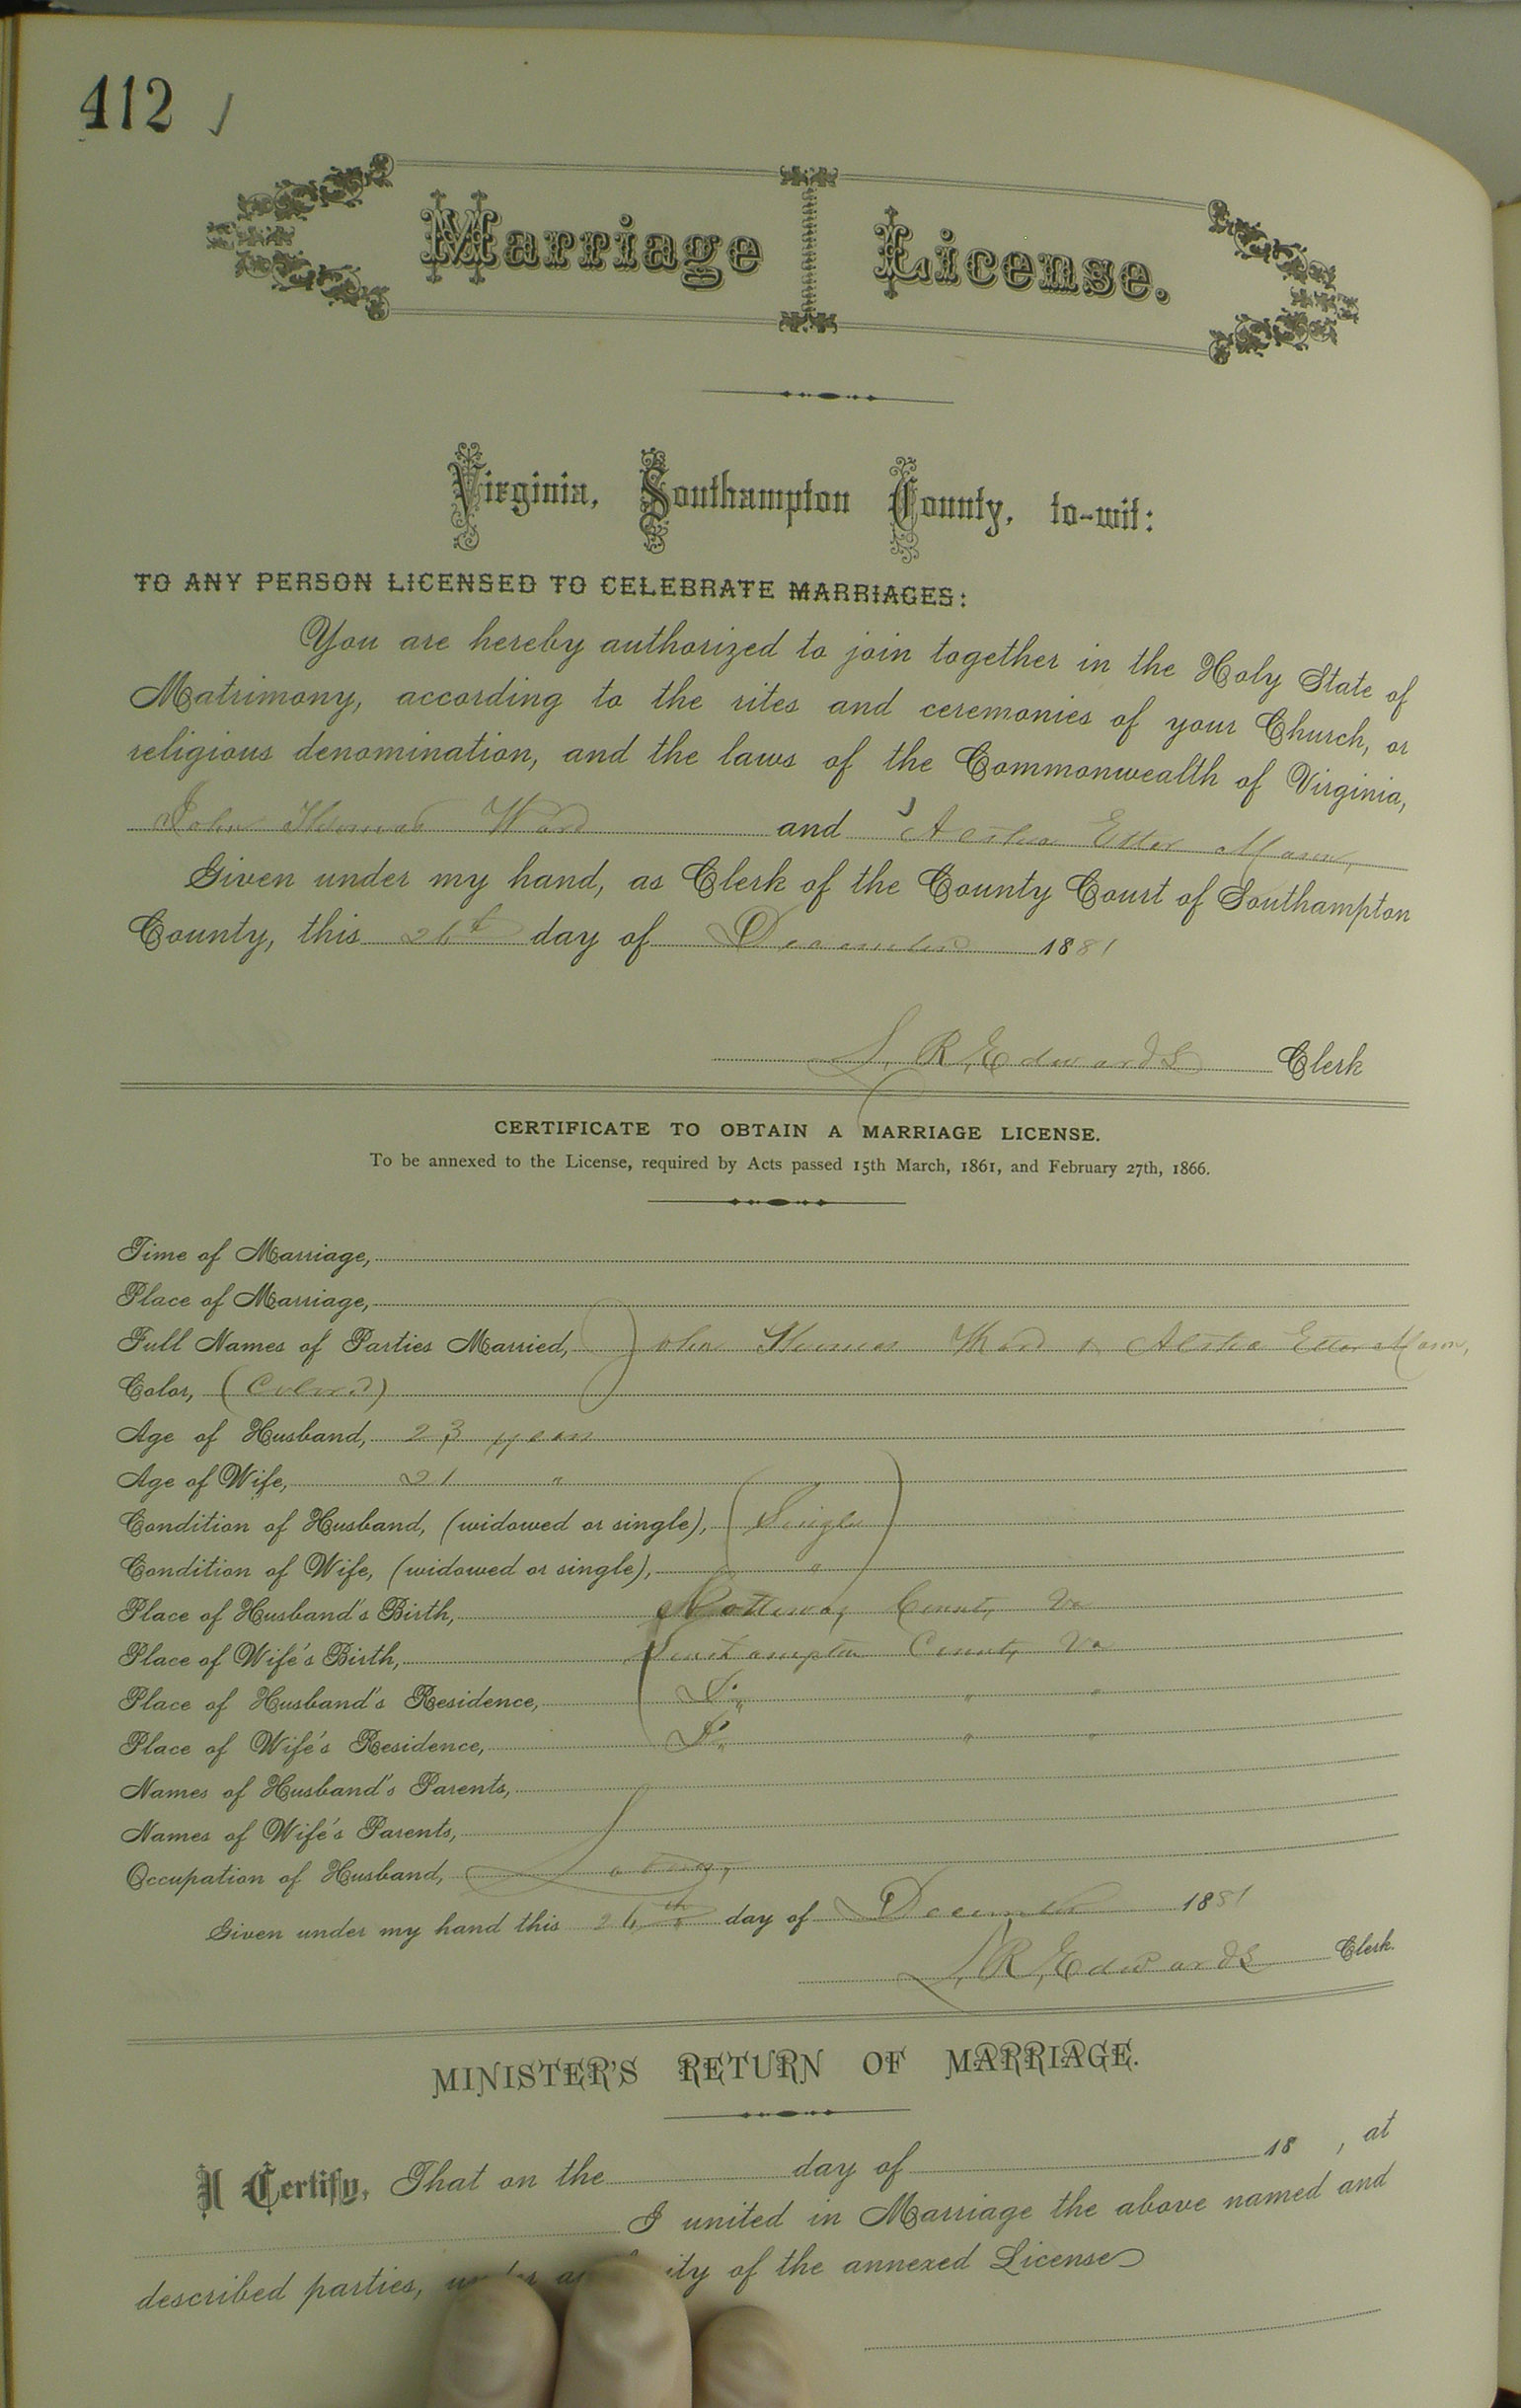 412
Marriage License.
Virginia, Southampton County, to-wit:
TO ANY PERSON LICENSED TO CELEBRATE MARRIAGES:
You are hereby authorized to join together in the Holy State of
Matrimony, according to the rites and ceremonies of your Church, or
religious denomination, and the laws of the Commonwealth of Virginia,
John Thomas Ward and Etter Mann,
Given under my hand, as Clerk of the County Court of Southampton
County, this 26th day of December 1881
L. R. Edwards Clerk
CERTIFICATE TO OBTAIN A MARRIAGE LICENSE.
To be annexed to the License, required by Acts passed 15th March, 1861, and February 27th, 1866.
Time of Marriage,
Place of Marriage,
Full Names of Parties Married, John Thomas Ward & Etter Mann,
Color, (Colored)
Age of Husband, 23 years
Age of Wife, 21 "
Condition of Husband, (widowed or single), Single
Condition of Wife, (widowed or single), "
Place of Husband's Birth, Nottoway County Va
Place of Wife's Birth, Southampton County Va
Place of Husband's Residence, " "
Place of Wife's Residence, " "
Names of Husband's Parents,
Names of Wife's Parents,
Occupation of Husband,
Given under my hand this 26th day of December 1881
L. R. Edwards Clerk.
MINISTER'S RETURN OF MARRIAGE.
I Certify, That on the day of 18 , at
I united in Marriage the above named and
described parties, under of the annexed License